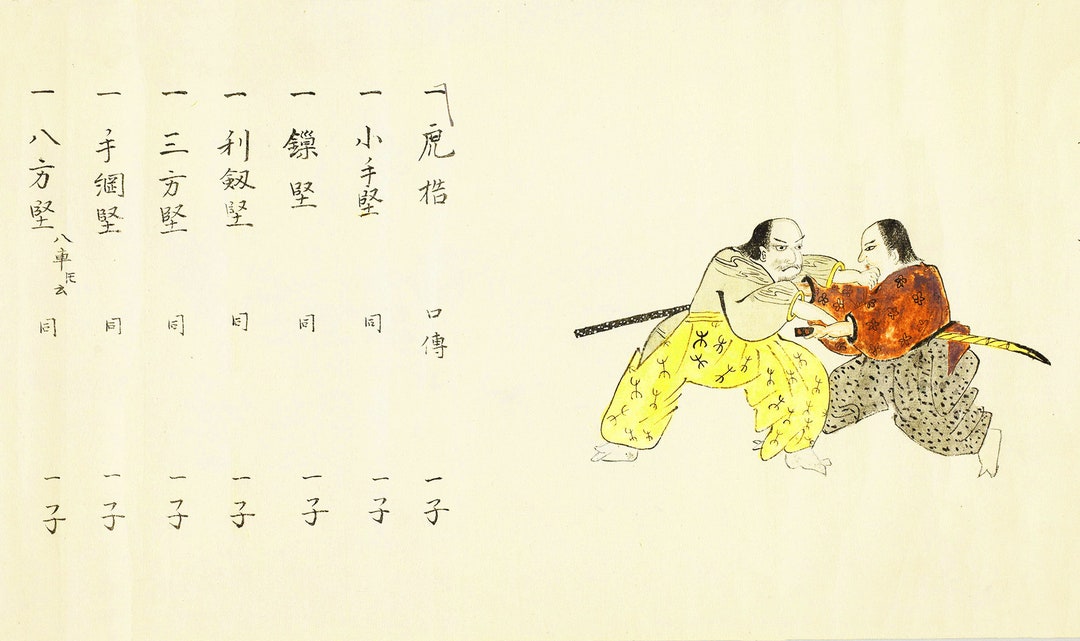 一 虎梏 口傳 一子
一 小手堅 同 一子
一 鏁堅 同 一子
一 利劔堅 同 一子
一 三方堅 同 一子
一 手綱堅 同 一子
一 八方堅 八車トモ云 同 一子